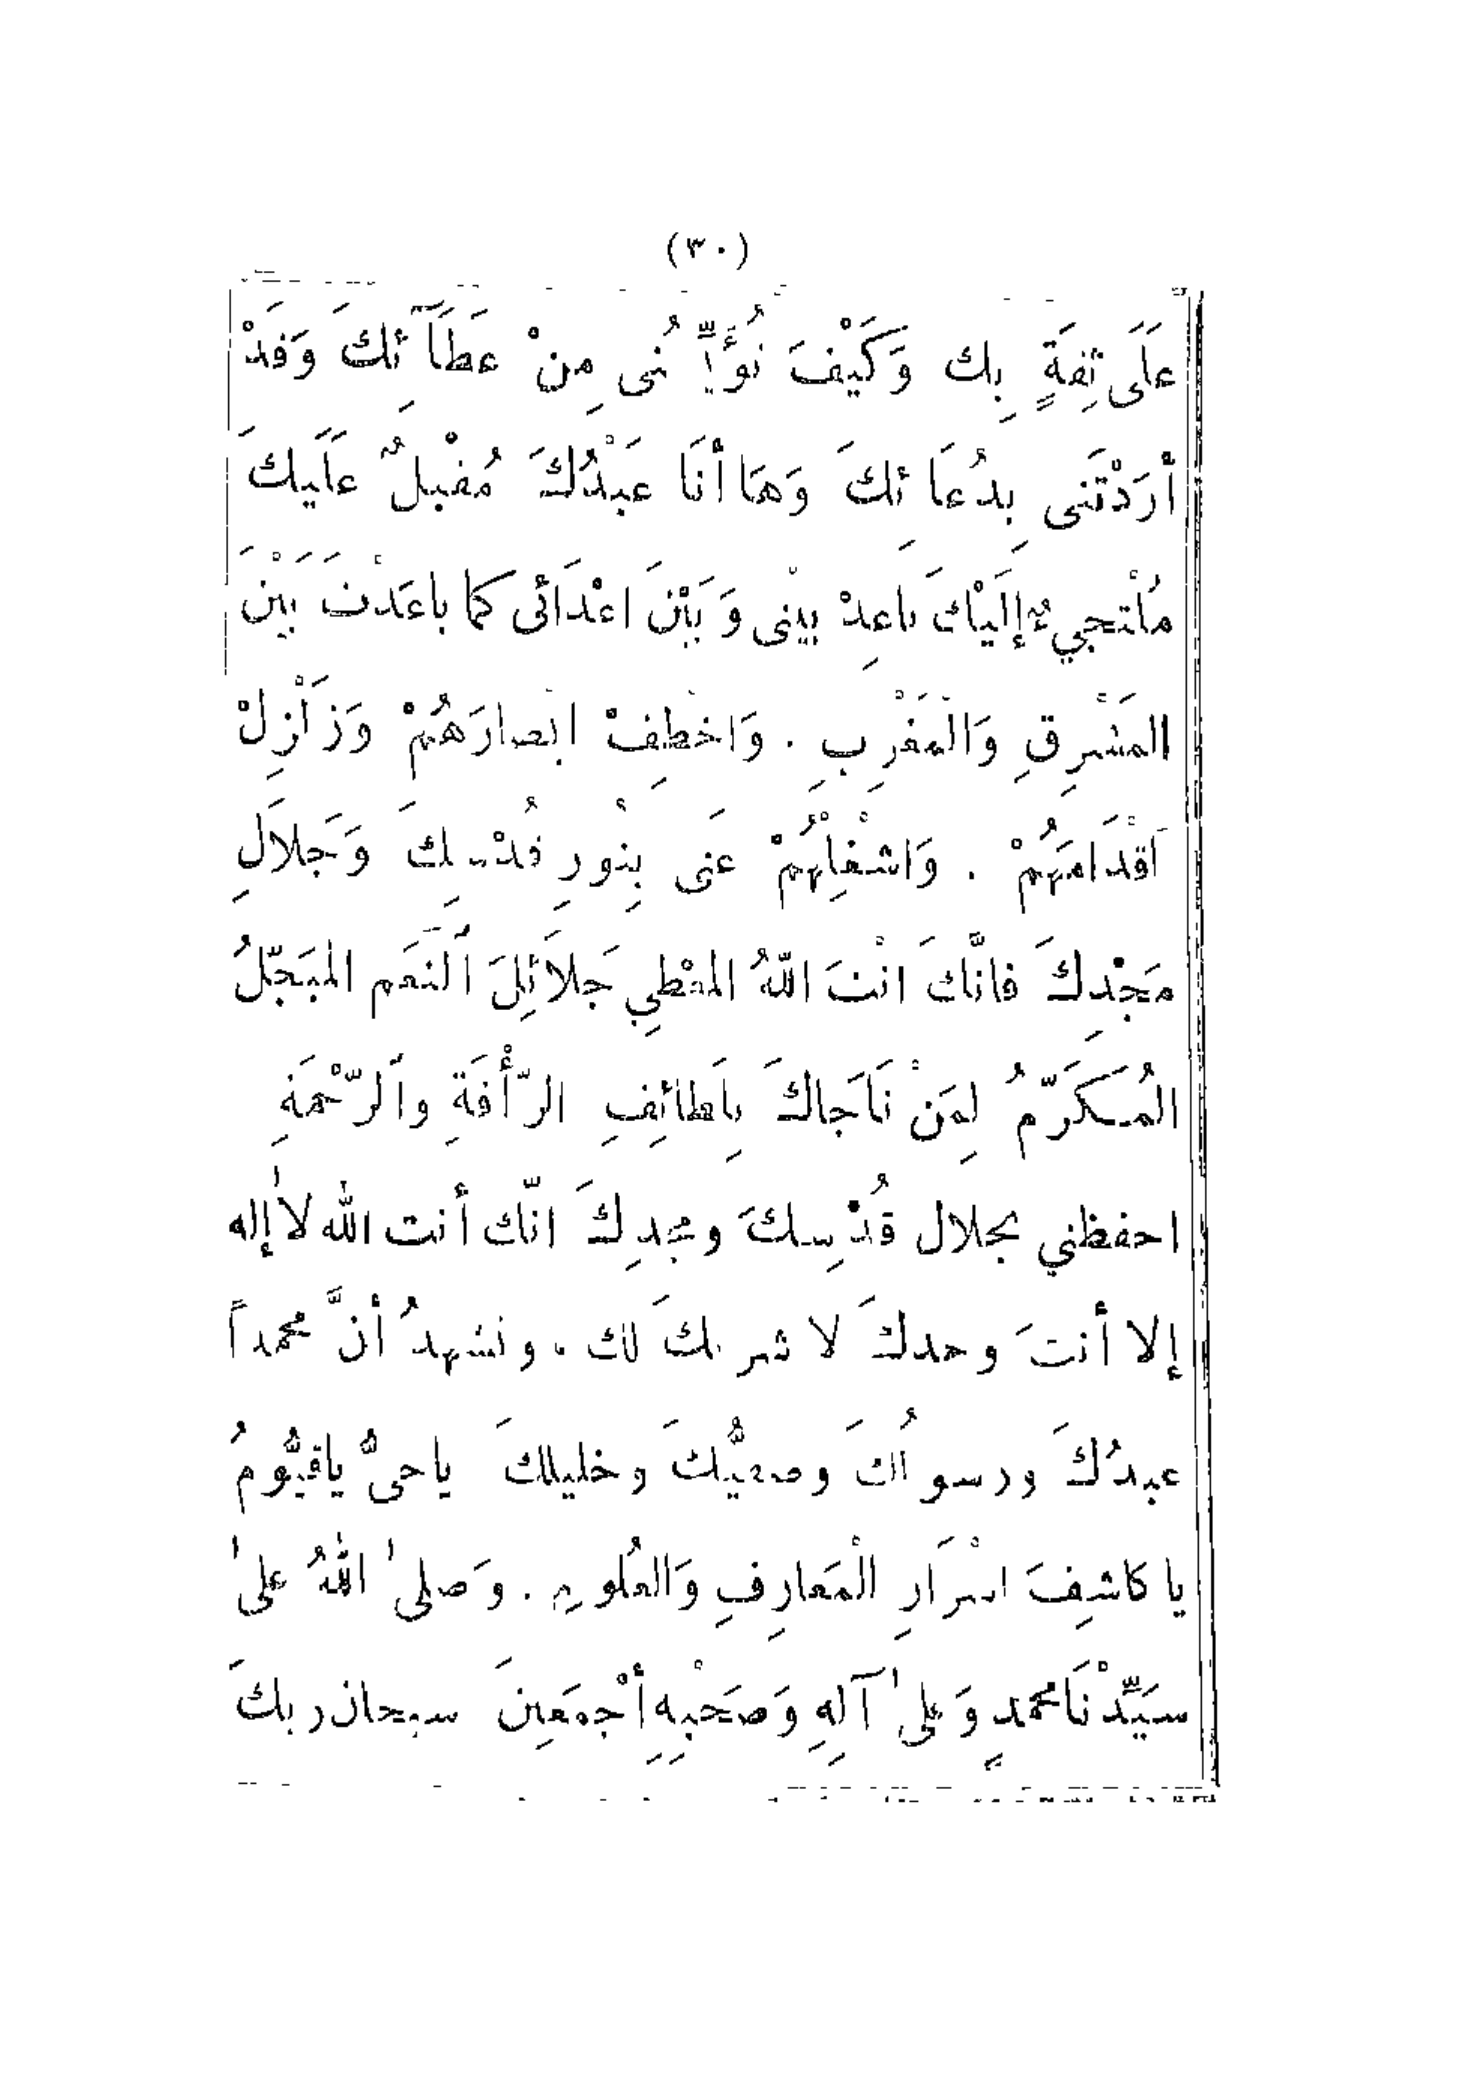 (٣٠)
عَلَى ثِقَةٍ بِك وَكَيْفَ تُوَّيِّسُنى مِنْ عَطَآئِكَ وَقَدْ
أرَدْتَنى بِدُعَائِكَ وَهَا أنَا عَبْدُكَ مُقْبِلٌ عَلَيكَ
مُلْتجِيءٌ إلَيْكَ باعِدْ بيْنى وَبَيْنَ اعْدَائى كما باعَدْتَ بَيْنَ
المَشْرِقِ وَالْمَغْرِبِ . وَاخْطِفْ ابْصارَهُمْ وَزَلْزِلْ
اَقْدَامَهُمْ . وَاشْغِلْهُمْ عَنى بِنُورِ قُدْسِكَ وَجَلالِ
مَجْدِكَ فانَّكَ انْتَ اللّهُ المعْطِي جَلاَئِلَ اَلنّعَم المبَجّلُ
المُكَرّمُ لِمَنْ نَاَجاكَ بِلَطائِفِ الرّأْفَةِ واَلرّحْمَةِ
احفظني بجلال قُدْسِكَ ومجدِكَ انّك أنت الله لا إله
إلا أنتَ وحدكَ لا شريكَ لك ، ونشهدُ أنَّ محمداً
عبدُكَ ورسولُكَ وصفيُّكَ وخليلكَ ياحىُّ ياقيُّومُ
يا كاشِفَ اسْرَارِ الْمَعارِفِ وَالعُلومِ . وَصلىٰ اللهُ علىٰ
سيَدِّنَا محمدٍ وَعلىٰ آلهِ وَصَحْبِهِ أجْمَعِينَ سبحان ربكَ